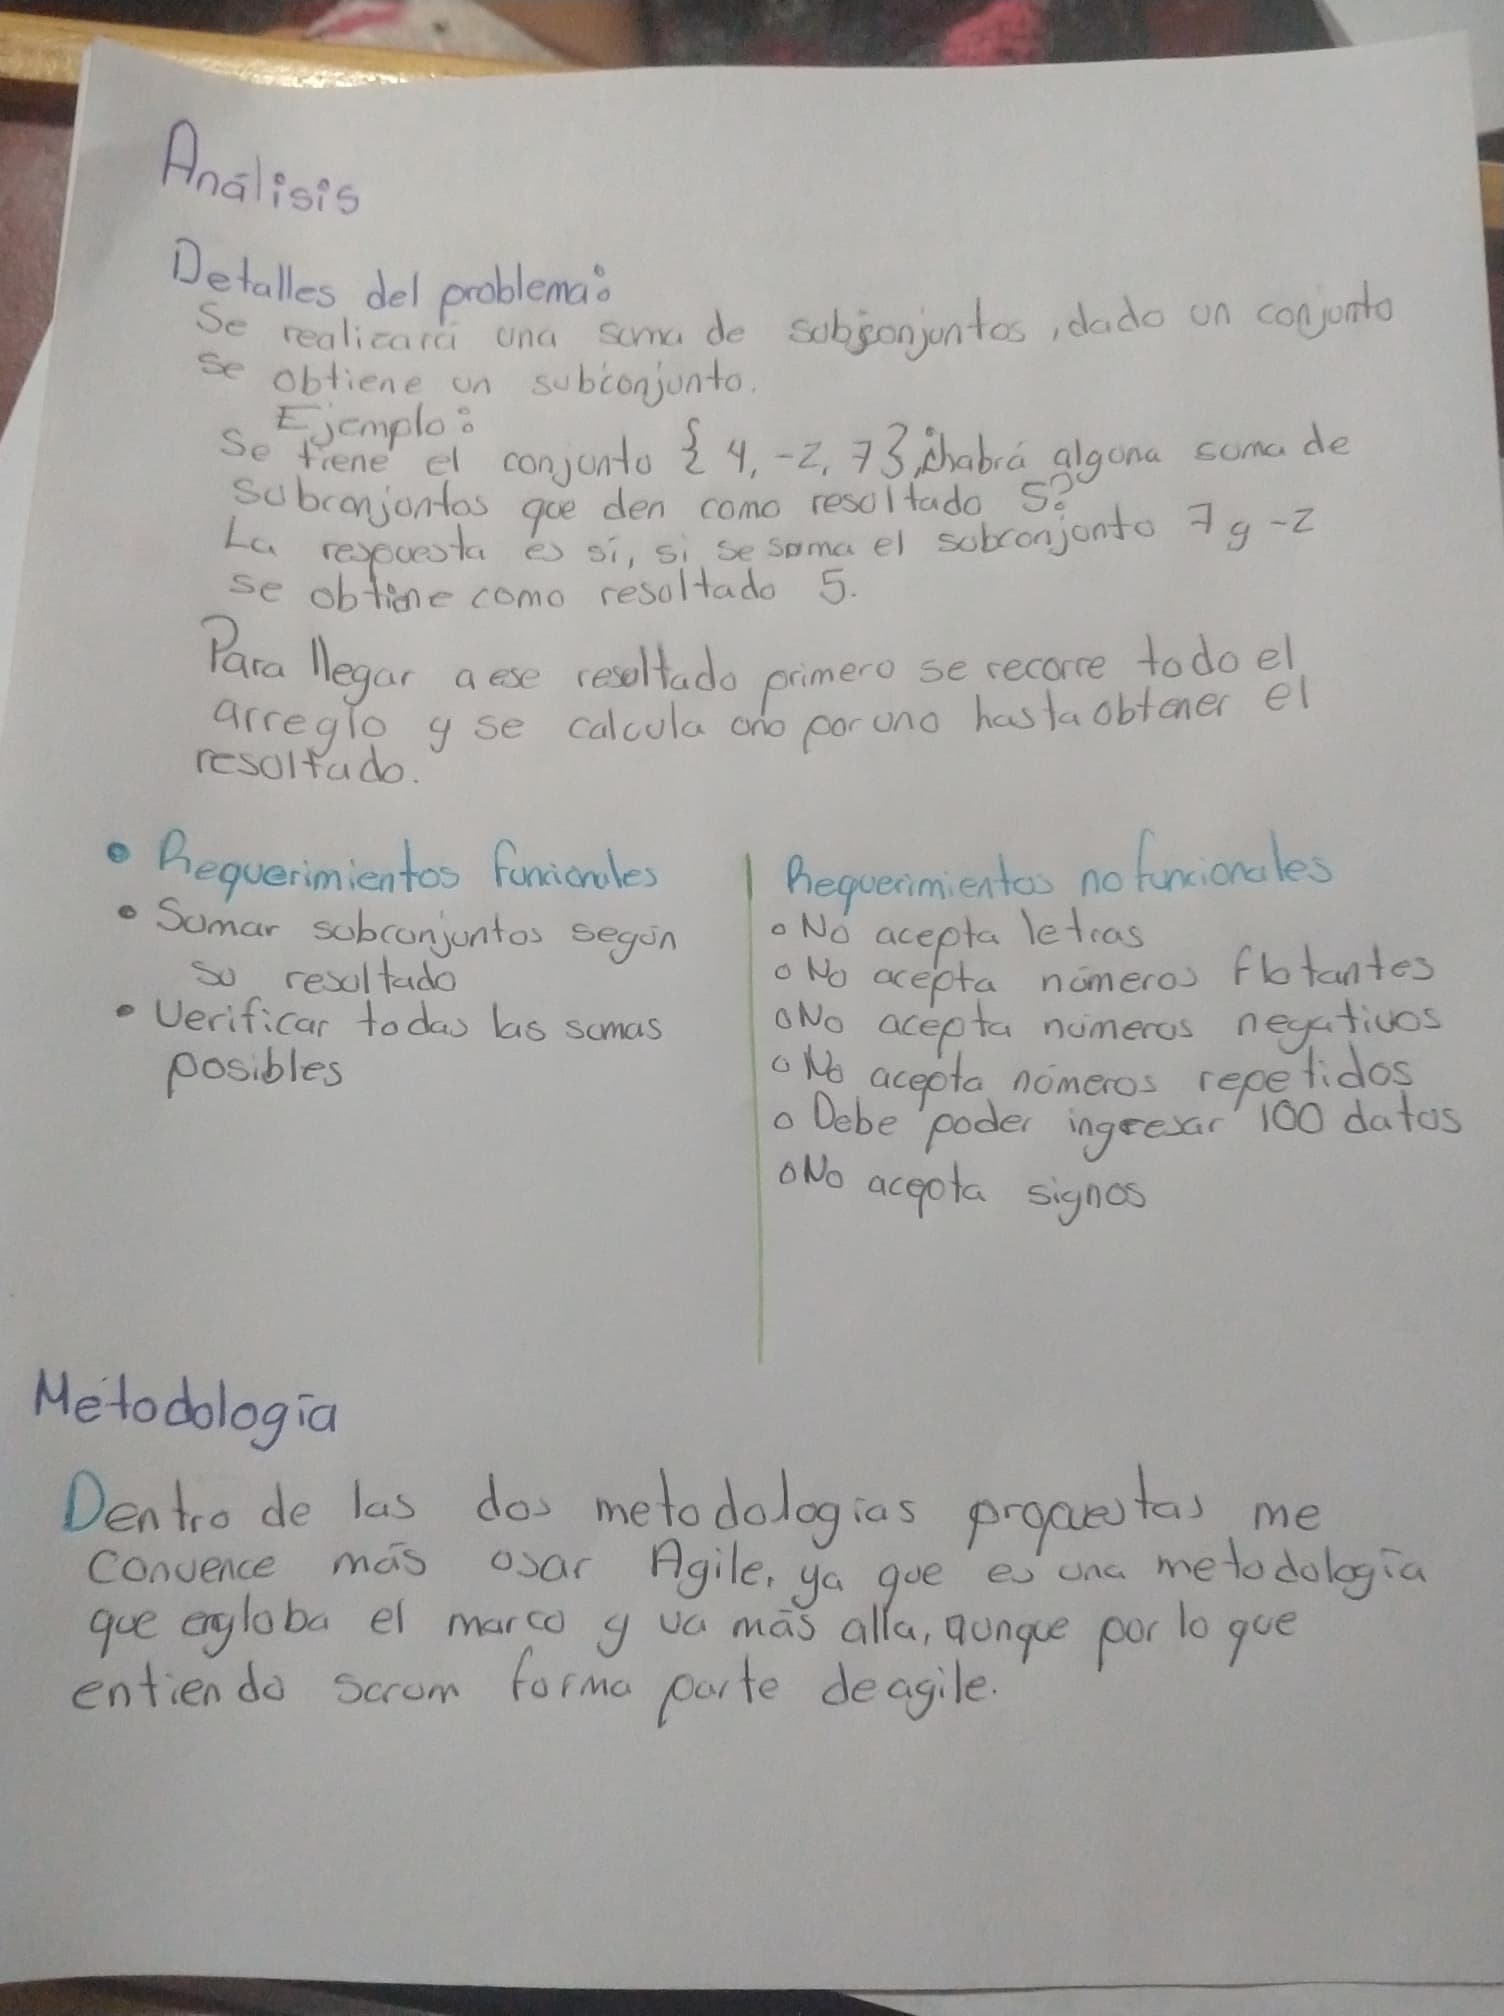 Análisis
Detalles del problema:
Se realizará una suma de subconjuntos, dado un conjunto
se obtiene un subconjunto.
Ejemplo:
Se tiene el conjunto {4, -2, 7}, ¿habrá alguna suma de
subconjuntos que den como resultado 5?
La respuesta es sí, si se suma el subconjunto 7 y -2
se obtine como resultado 5.
Para llegar a ese resultado primero se recorre todo el
arreglo y se calcula uno por uno hasta obtener el
resultado.
• Requerimientos funcionales
• Sumar subconjuntos según
su resultado
• Verificar todas las sumas
posibles
Requerimientos no funcionales
o No acepta letras
o No acepta números flotantes
o No acepta números negativos
o No acepta números repetidos
o Debe poder ingresar 100 datos
o No acepta signos
Metodología
Dentro de las dos metodologías propuestas me
convence más usar Agile, ya que es una metodología
que engloba el marco y va más alla, aunque por lo que
entiendo scrum forma parte de agile.